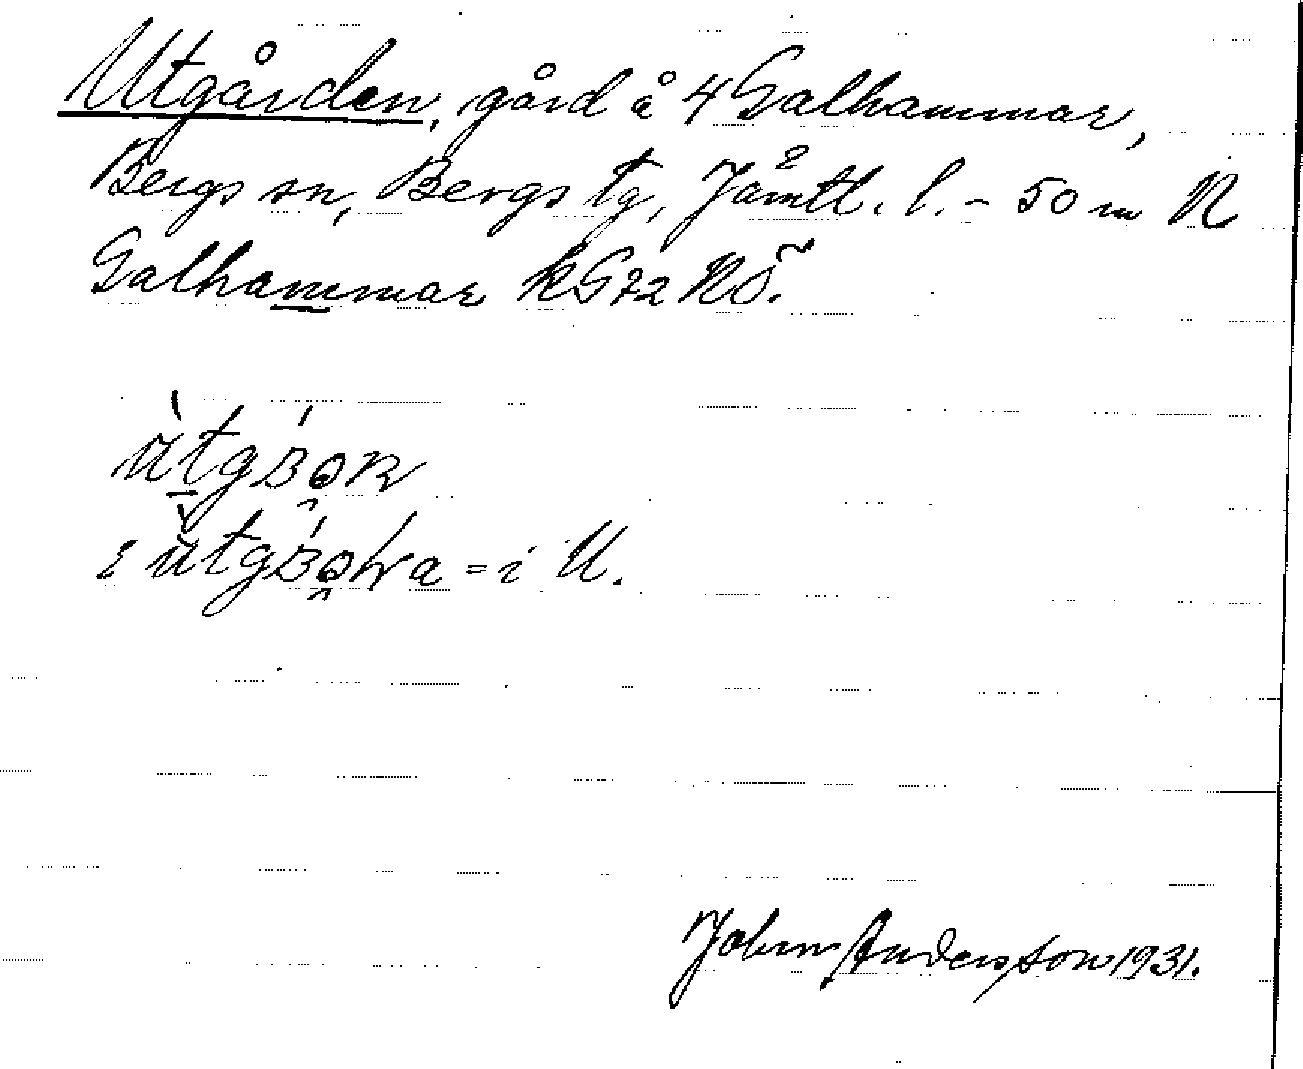 Utgården, gård å 4 Galhammar,
Bergs sn, Bergs tg, Jämtl. l. - 50 m N
Galhammar kG72 NÖ.
= i U.
John Andersson 1931.